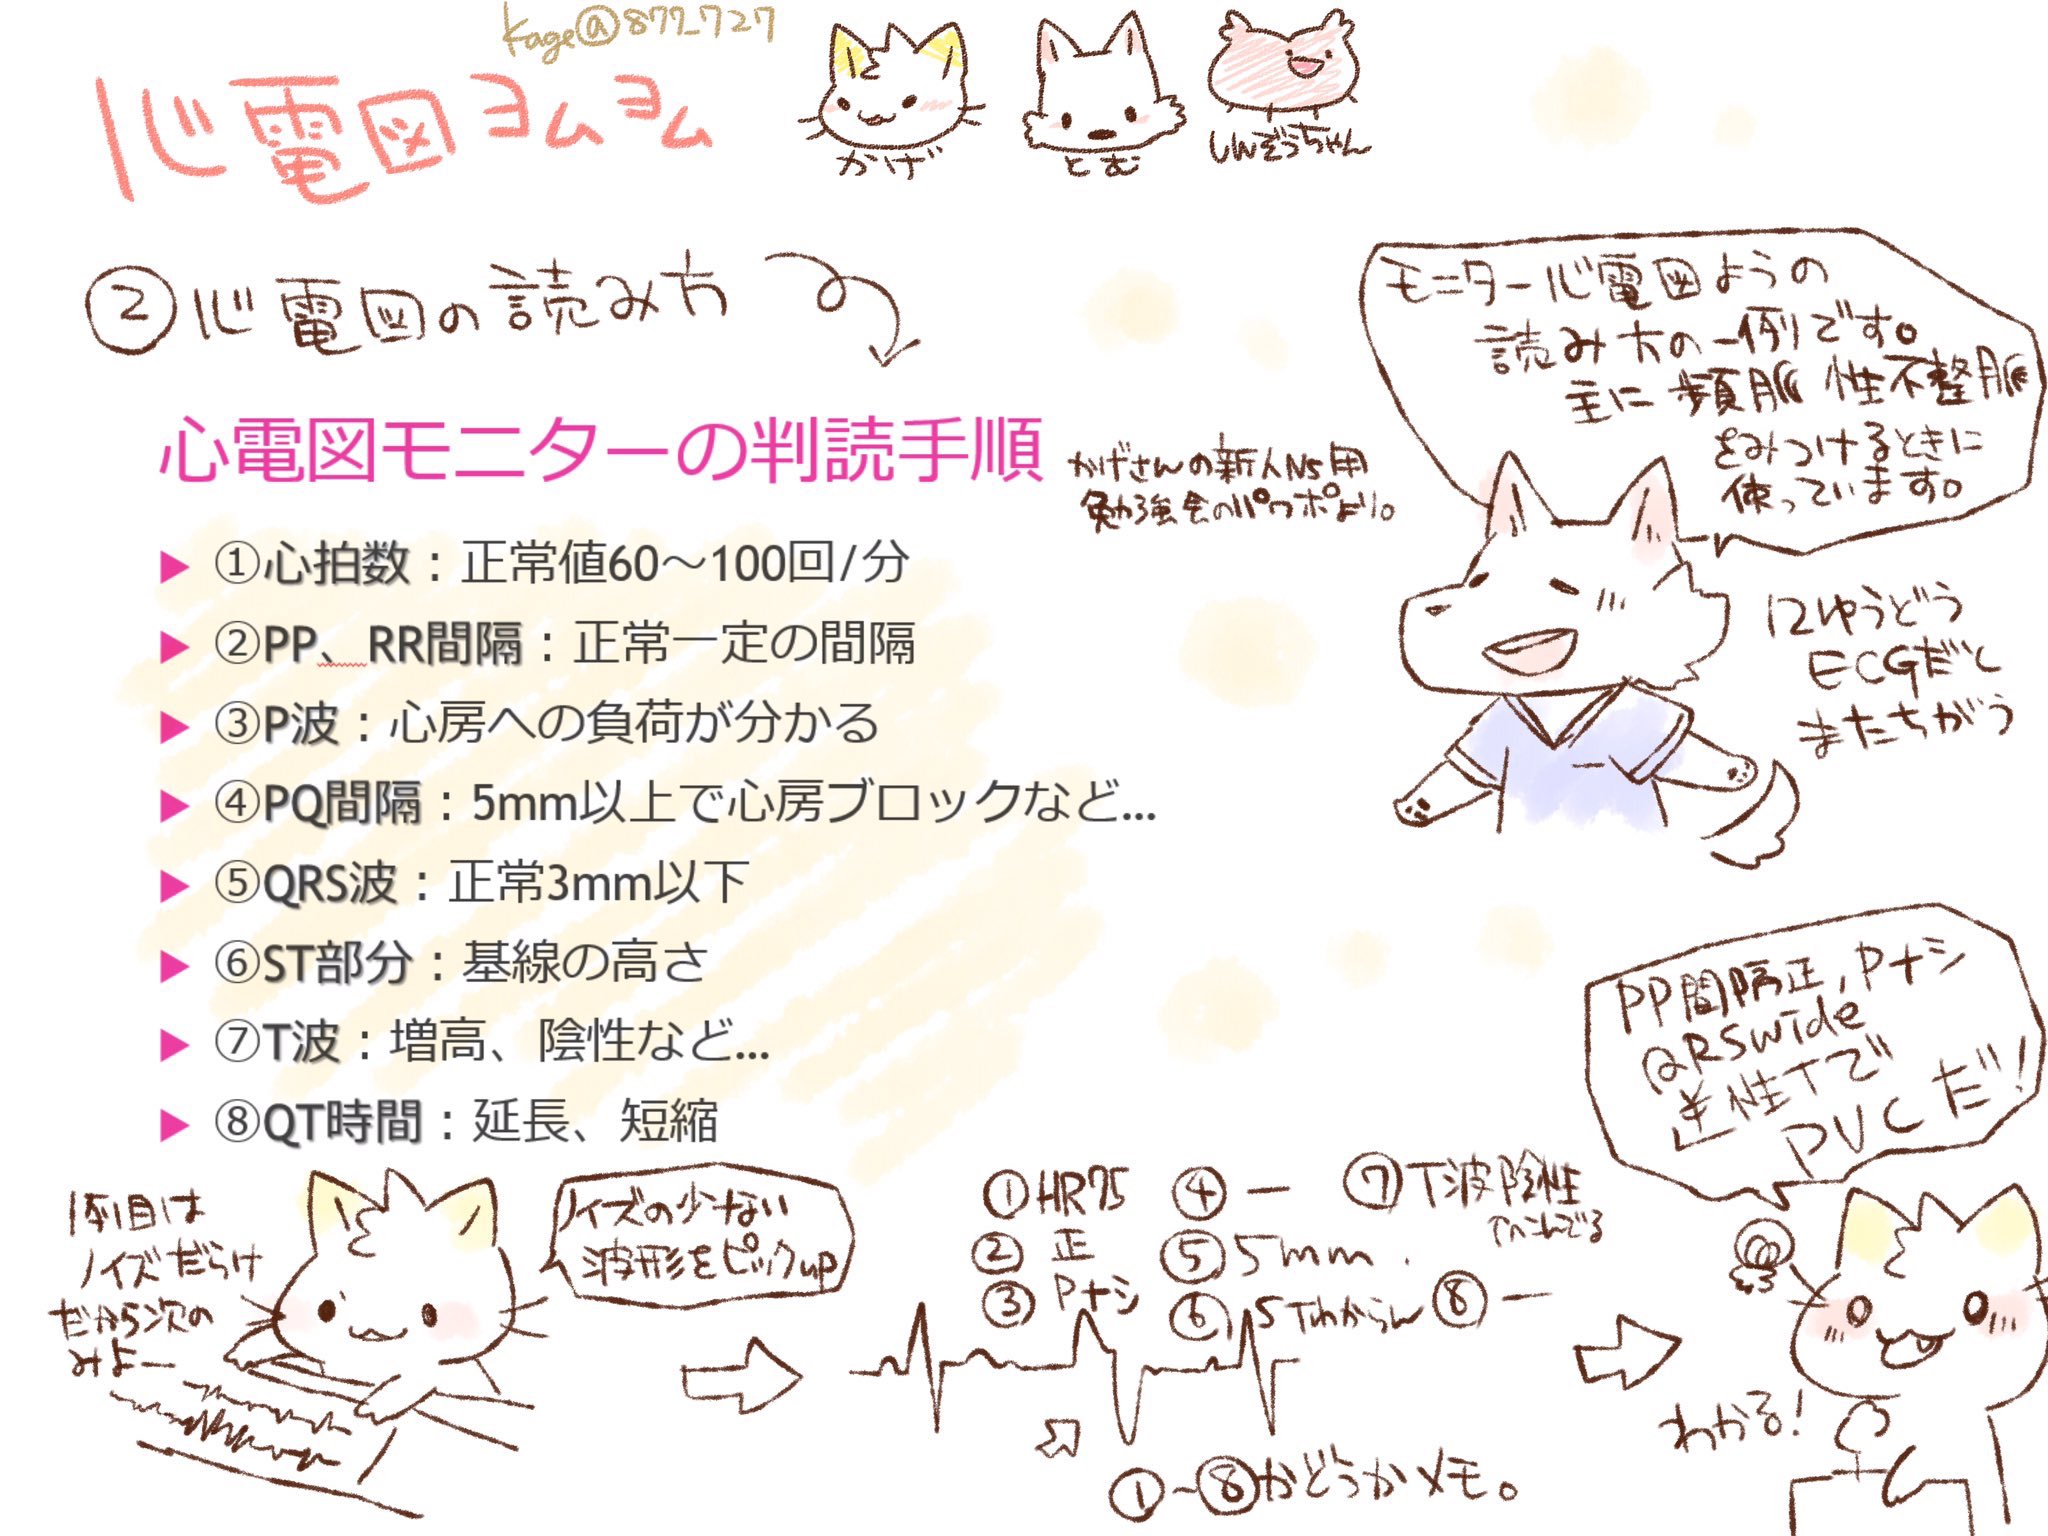 Kage@877_727
心電図ヨムヨム
かげ
とむ
しんぞうちゃん
②心電図の読み方
モニター心電図ようの
読み方の一例です。
主に頻脈性不整脈
をみつけるときに
使っています。
心電図モニターの判読手順
かげさんの新人Ns用
勉強会のパワポより。
①心拍数：正常値60～100回/分
②PP、RR間隔：正常一定の間隔
③P波：心房への負荷が分かる
④PQ間隔：5mm以上で心房ブロックなど...
⑤QRS波：正常3mm以下
⑥ST部分：基線の高さ
⑦T波：増高、陰性など...
⑧QT時間：延長、短縮
12ゆうどう
ECGだと
またちがう
1例目は
ノイズだらけ
だから次の
みよー
ノイズの少ない
波形をピックup
①HR75
②正
③Pナシ
④ー
⑤5mm.
⑥STわからん
⑦T波陰性
へこんでる
⑧ー
①~⑧かどうかメモ。
PP間隔正,Pナシ
QRSwide
陰性Tで
PVCだ!
わかる!